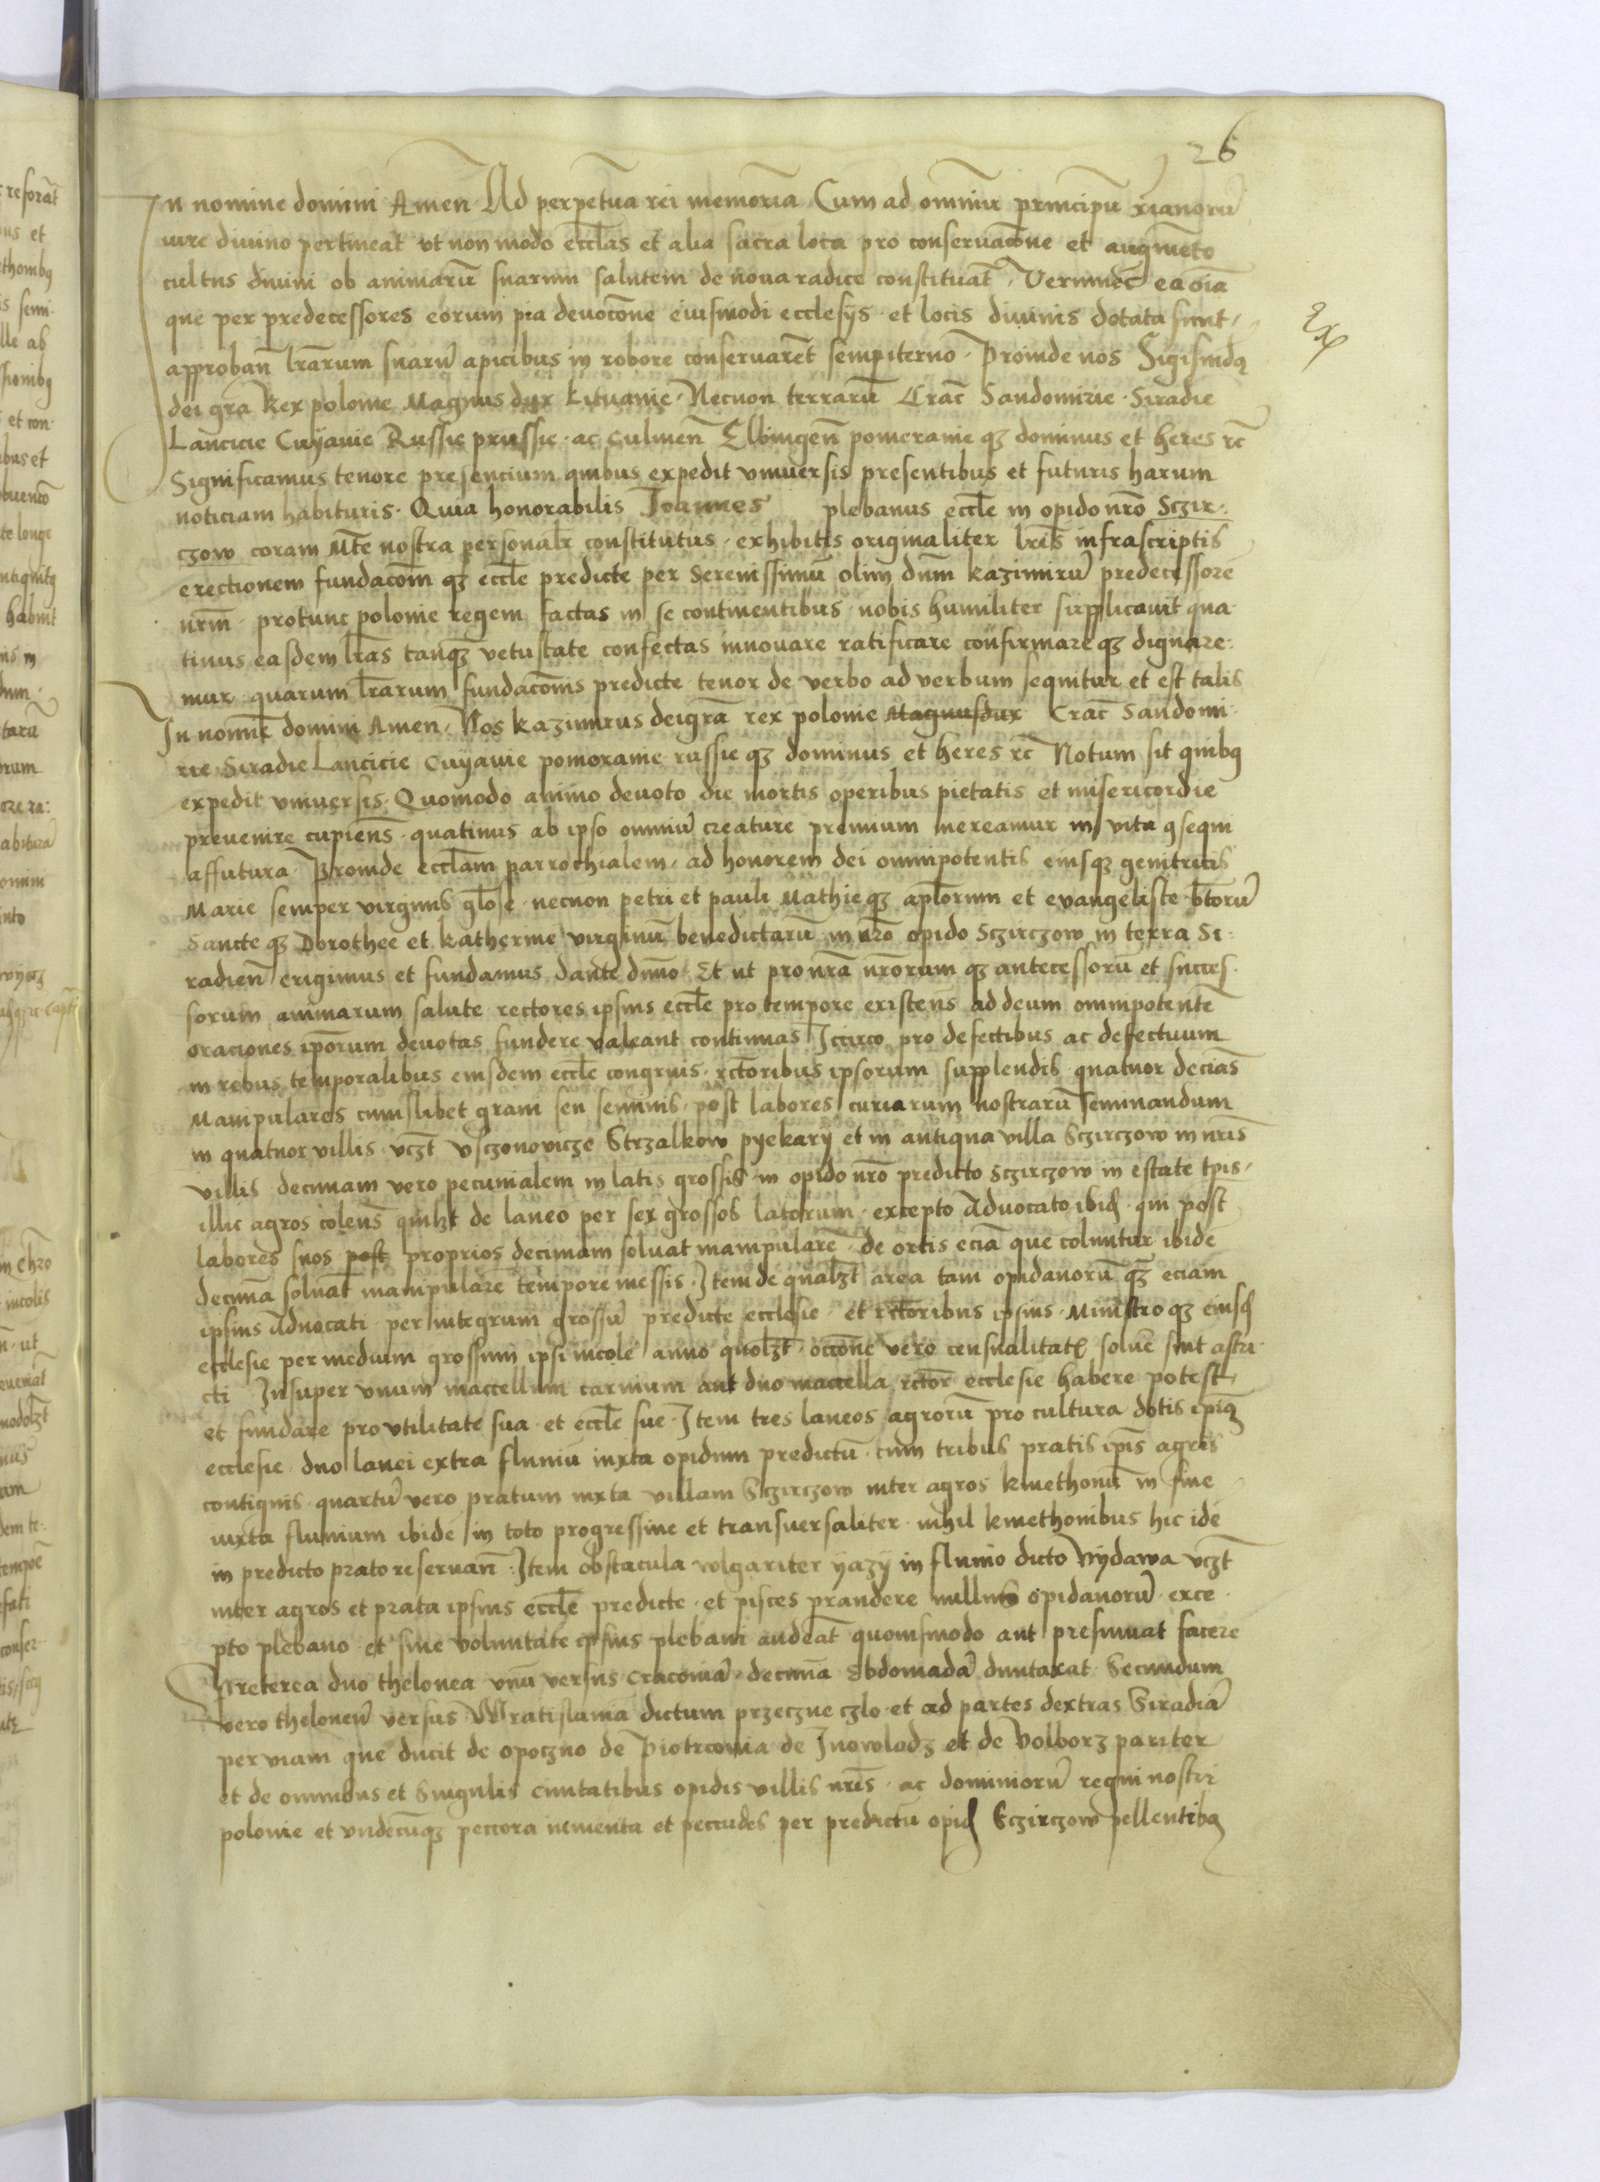 26
In nomine domini Amen Ad perpetuā rei memoriā Cum ad omniū principū xianorū
iure diuino pertineat vt non modo eccl̄as et alia sacra loca pro conseruacōne et augmēto
cultus diuini ob animarū suarum salutem de noua radice constituāt Verumeciā ea oīa
que per predecessores eorum pia deuocōne eiusmodi ecclesijs et locis diuinis dotata sunt
approban̄ lr̄arum suarū apicibus in robore conseruarēt sempiterno Proinde nos Sigismūdꝯ
dei gr̄a Rex polonie Magnus dux Lituanie Necnon terrarū Crac̄ Sandomirie Siradie
Lancicie Cuyauie Russie prussie ac Culmen̄ Elbingen̄ pomeranie qȝ dominus et heres rc̄
Significamus tenore presencium quibus expedit vniuersis presentibus et futuris harum
noticiam habituris Quia honorabilis Joannes plebanus eccl̄e in opido nr̄o Sczir
czow coram Mt̄e nostra personalr̄ constitutus exhibitis originaliter lr̄is infrascriptis
erectionem fundacōm̄ qȝ eccl̄e predicte per Serenissimū olim dn̄m kazimirū predecessorē
nr̄m protunc polonie regem factas in se continentibus nobis humiliter supplicauit qua
tinus easdem lr̄as tanqȝ vetustate confectas innouare ratificare confirmare qȝ dignare
mur quarum lr̄arum fundacōnis predicte tenor de verbo ad verbum sequitur et est talis
In nomīe domini Amen Nos kazimirus dei gr̄a rex polonie Magnus dux Crac̄ Sandomi
rie Siradie Lancicie Cuyauie pomoranie russie qȝ dominus et heres rc̄ Notum sit quibꝯ
expedit vniuersis Quomodo animo deuoto die mortis operibus pietatis et misericordie
preuenire cupiens̄ quatinus ab ipso omniū creature premium mereamur in vita ꝯsequi
affutura Proinde eccl̄am parrochialem ad honorem dei omnipotentis eiusqȝ genitricis
Marie semper virginis gl̄ose necnon petri et pauli Mathie qȝ apl̄orum et evangeliste bt̄orū
Sancte qȝ Dorothee et katherine virginū benedictarū in nr̄o opido Sczirczow in terra Si
radien̄ erigimus et fundamus dante dn̄o Et ut pro nr̄a nr̄orum qȝ antecessorū et succes
sorum animarum salute rectores ipsius eccl̄e pro tempore existens̄ ad deum omnipotentē
oraciones ip̄orum deuotas fundere valeant continuas Iccirco pro defectibus ac defectuum
in rebus temporalibus eiusdem eccl̄e congruis rct̄oribus ipsorum supplendis quatuor decīas
Manipulares cuiuslibet grani seu seminis post labores curiarum nostrarū seminandum
in quatuor villis vcȝt Vsczonovicze Strzalkow pyekary et in antiqua villa Sczirczow in nr̄is
villis decimam vero pecunialem in latis grossis in opido nr̄o predicto Sczirczow in estate tp̄is
illic agros colens̄ quilȝt de laneo per sex grossos latorum excepto Aduocato ibid̄ qui post
labores suos post proprios decimam soluat manipularē de ortis eciā que coluntur ibidē
decimā soluāt manipularē tempore messis Item de qualȝt area tam opidanorū qȝ eciam
ipsius Aduocati per integrum grossū predicte ecclesie et rct̄oribus ipsius Ministro qȝ eiusd̄
ecclesie per medium grossum ipsi incole anno quolȝt occōne vero censualitat̄ soluē sint astri
cti Insuper vnum maccellum carnium aut duo maccella rct̄or ecclesie habere potest
et fundare pro vtilitate sua et eccl̄e sue Item tres laneos agrorū pro cultura dotis ip̄iꝯ
ecclesie duo lanei extra fluuiū iuxta opidum predictū cum tribus pratis ip̄is agris
contiguis quartū vero pratum iuxta villam Sczirczow inter agros kmethonū in fine
iuxta fluuium ibidē in toto progressiue et transuersaliter nihil kmethonibus hic idē
in predicto prato reseruan̄ Item obstacula volgariter yazy in fluuio dicto Vydawa vcȝt
inter agros et prata ipsius eccl̄e predicte et pisces prandere nullus opidanorū exce
pto plebano et sine voluntate ipsius plebani audeāt quouismodo aut presumat facere
Preterea duo thelonea vnū versus Cracouiā decimā ebdomadā duntaxat Secundum
vero theloneū versus Wratislauiā dictum przeczne czlo et ad partes dextras Siradiā
per viam que ducit de opoczno de Piotrcovia de Inowlodz et de Volborz pariter
et de omnibus et singulis ciuitatibus opidis villis nr̄is ac dominiorū regni nostri
polonie et vndecūqȝ peccora iumenta et peccudes per predictū opid̄ Sczirczow pellentibꝯ